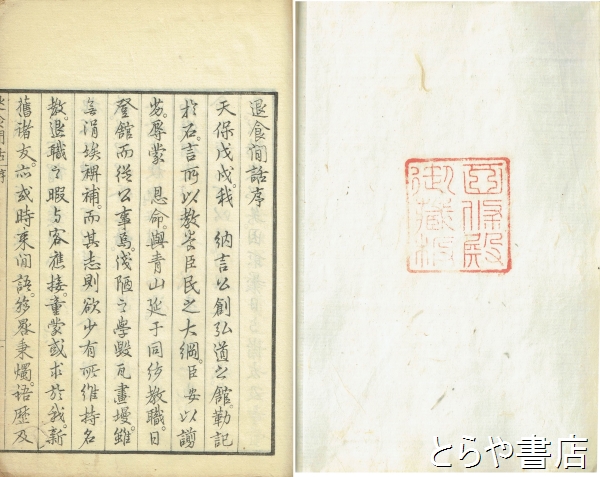 退食間話序
天保戊戌。我　納言公創弘道之館。勒記
於石。言所以教㞮臣民之大綱。臣安以謭
劣。辱蒙　恩命。與青山延于同効教職。日
登館而從公事焉。伐陋之學毀瓦畫墁。雖
無涓埃裨補。而其志則欲少有所維持名
教。退職之暇与客應接。童蒙或求於我。新
舊諸友。亦或時来間語。移晷秉燭。語歴及
御蔵板
とらや書店